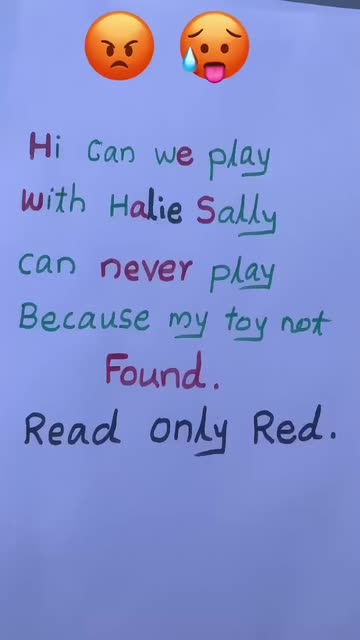 Hi can we play
with Halie Sally
can never play
Because my toy not
Found.
Read only Red.